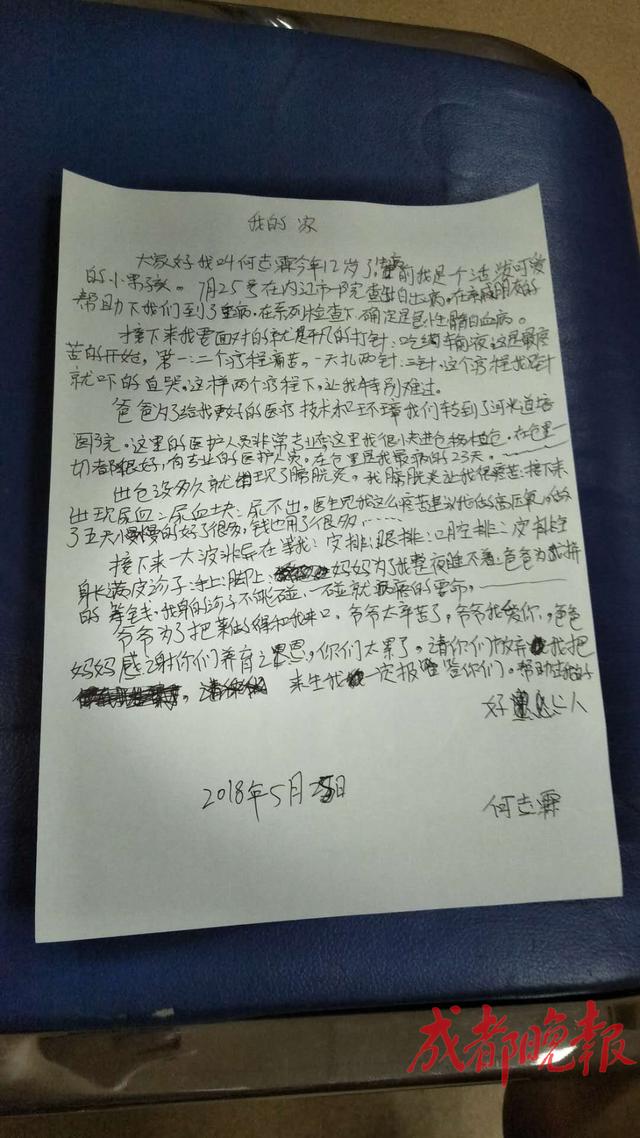 我的家
大家好我叫何志霖今年12岁了,前我是个活泼可爱
的小男孩。7月25号在内江市一院查出白血病,在亲戚朋友的
帮助下我们到了重病,在系列检查下确定是急性髓白血病。
接下来我要面对的就是平凡的打针:吃药输液,这是最痛
苦的开始,第一:二个疗程痛苦。一天扎两针:三针,这个疗程我见针
就吓的直哭,这样两个疗程下,让我特别难过。
爸爸为了给我更好的医疗技术和环璋我们转到了河北道培
医院。这里的医护人员非常专业,这里我很快进仓移植仓。在仓里一
切都很好,有专业的医护人员。在仓里是我最痛的23天。
出仓没多久就出现了膀胱炎。我膀胱炎让我很疼苦:接下来
出现尿血:尿血块:尿不出。医生见我这么疼苦建议他做高压氧,做
了五天小慢慢的好了很多,钱也用了很多……
接下来一大波排异在等我:皮排:眼排:口腔排:皮排全
身长满皮诊子:手上:脚上:妈妈为了我整夜睡不着:爸爸为拼
的筹钱:我身的诊子不能碰,一碰就疼的要命,
爷爷为了把来口,爷爷太辛苦了,爷爷我爱你,爸爸
妈妈感谢你们养育之恩,你们太累了。请你们放弃我把
来生我一定报答你们。帮助过我的
好心人
2018年5月25日
何志霖
成都晚报